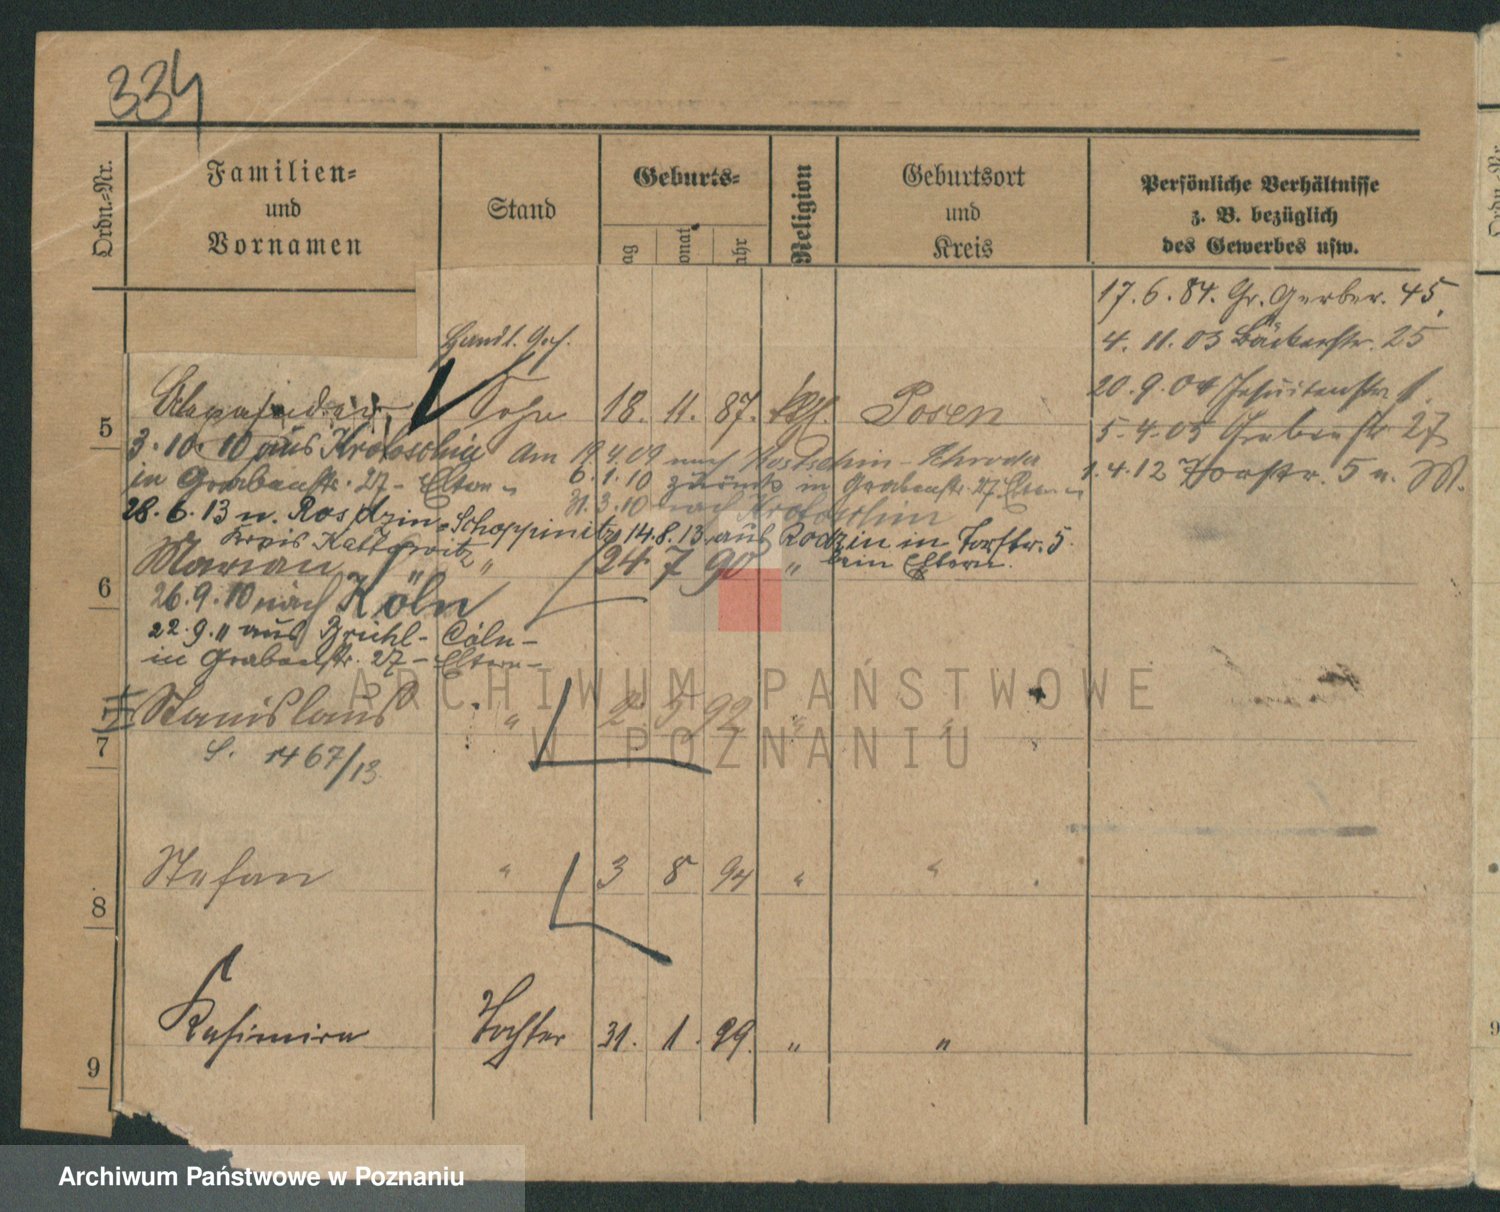 334
Ordn.-Nr.
Familien-
und
Vornamen
Stand
Geburts-
ag
onat
ahr
Religion
Geburtsort
und
Kreis
Persönliche Verhältnisse
z. B. bezüglich
des Gewerbes usw.
17. 6. 84. Gr. Gerber. 45.
4. 11. 03 Bäckerstr. 25
20. 9. 04 Jesuitenstr.
5. 4. 05 27
1. 4. 12 Torstr. 5 u. M.
Handl. Geh.
5 Sohn 18. 11. 87. kth. Posen
3. 10. 10 aus Krotoschin Am 19 4 09 nach
in Grabenstr. 27 - Eltern - 6. 1. 10 zurück in Grabenstr. 27 Eltern -
31. 3. 10 nach Krotoschin
28. 6. 13 n. Rosdzin - Schoppinitz 14. 8. 13 aus Rodzin in Torstr. 5
Kreis Kattowitz bein Eltern.
6 Marian " " 24 7 90 "
26. 9. 10 nach Köln
22. 9. 11 aus Brühl - Cöln -
in Grabenstr. 27 - Eltern -
7 Stanislaus " 2. 5 92 " "
S. 1467/13
8 Stefan " 3 8 94 " "
9 Kasimira Tochter 31. 1. 99. " "
ARCHIWUM PAŃSTWOWE
W POZNANIU
Archiwum Państwowe w Poznaniu